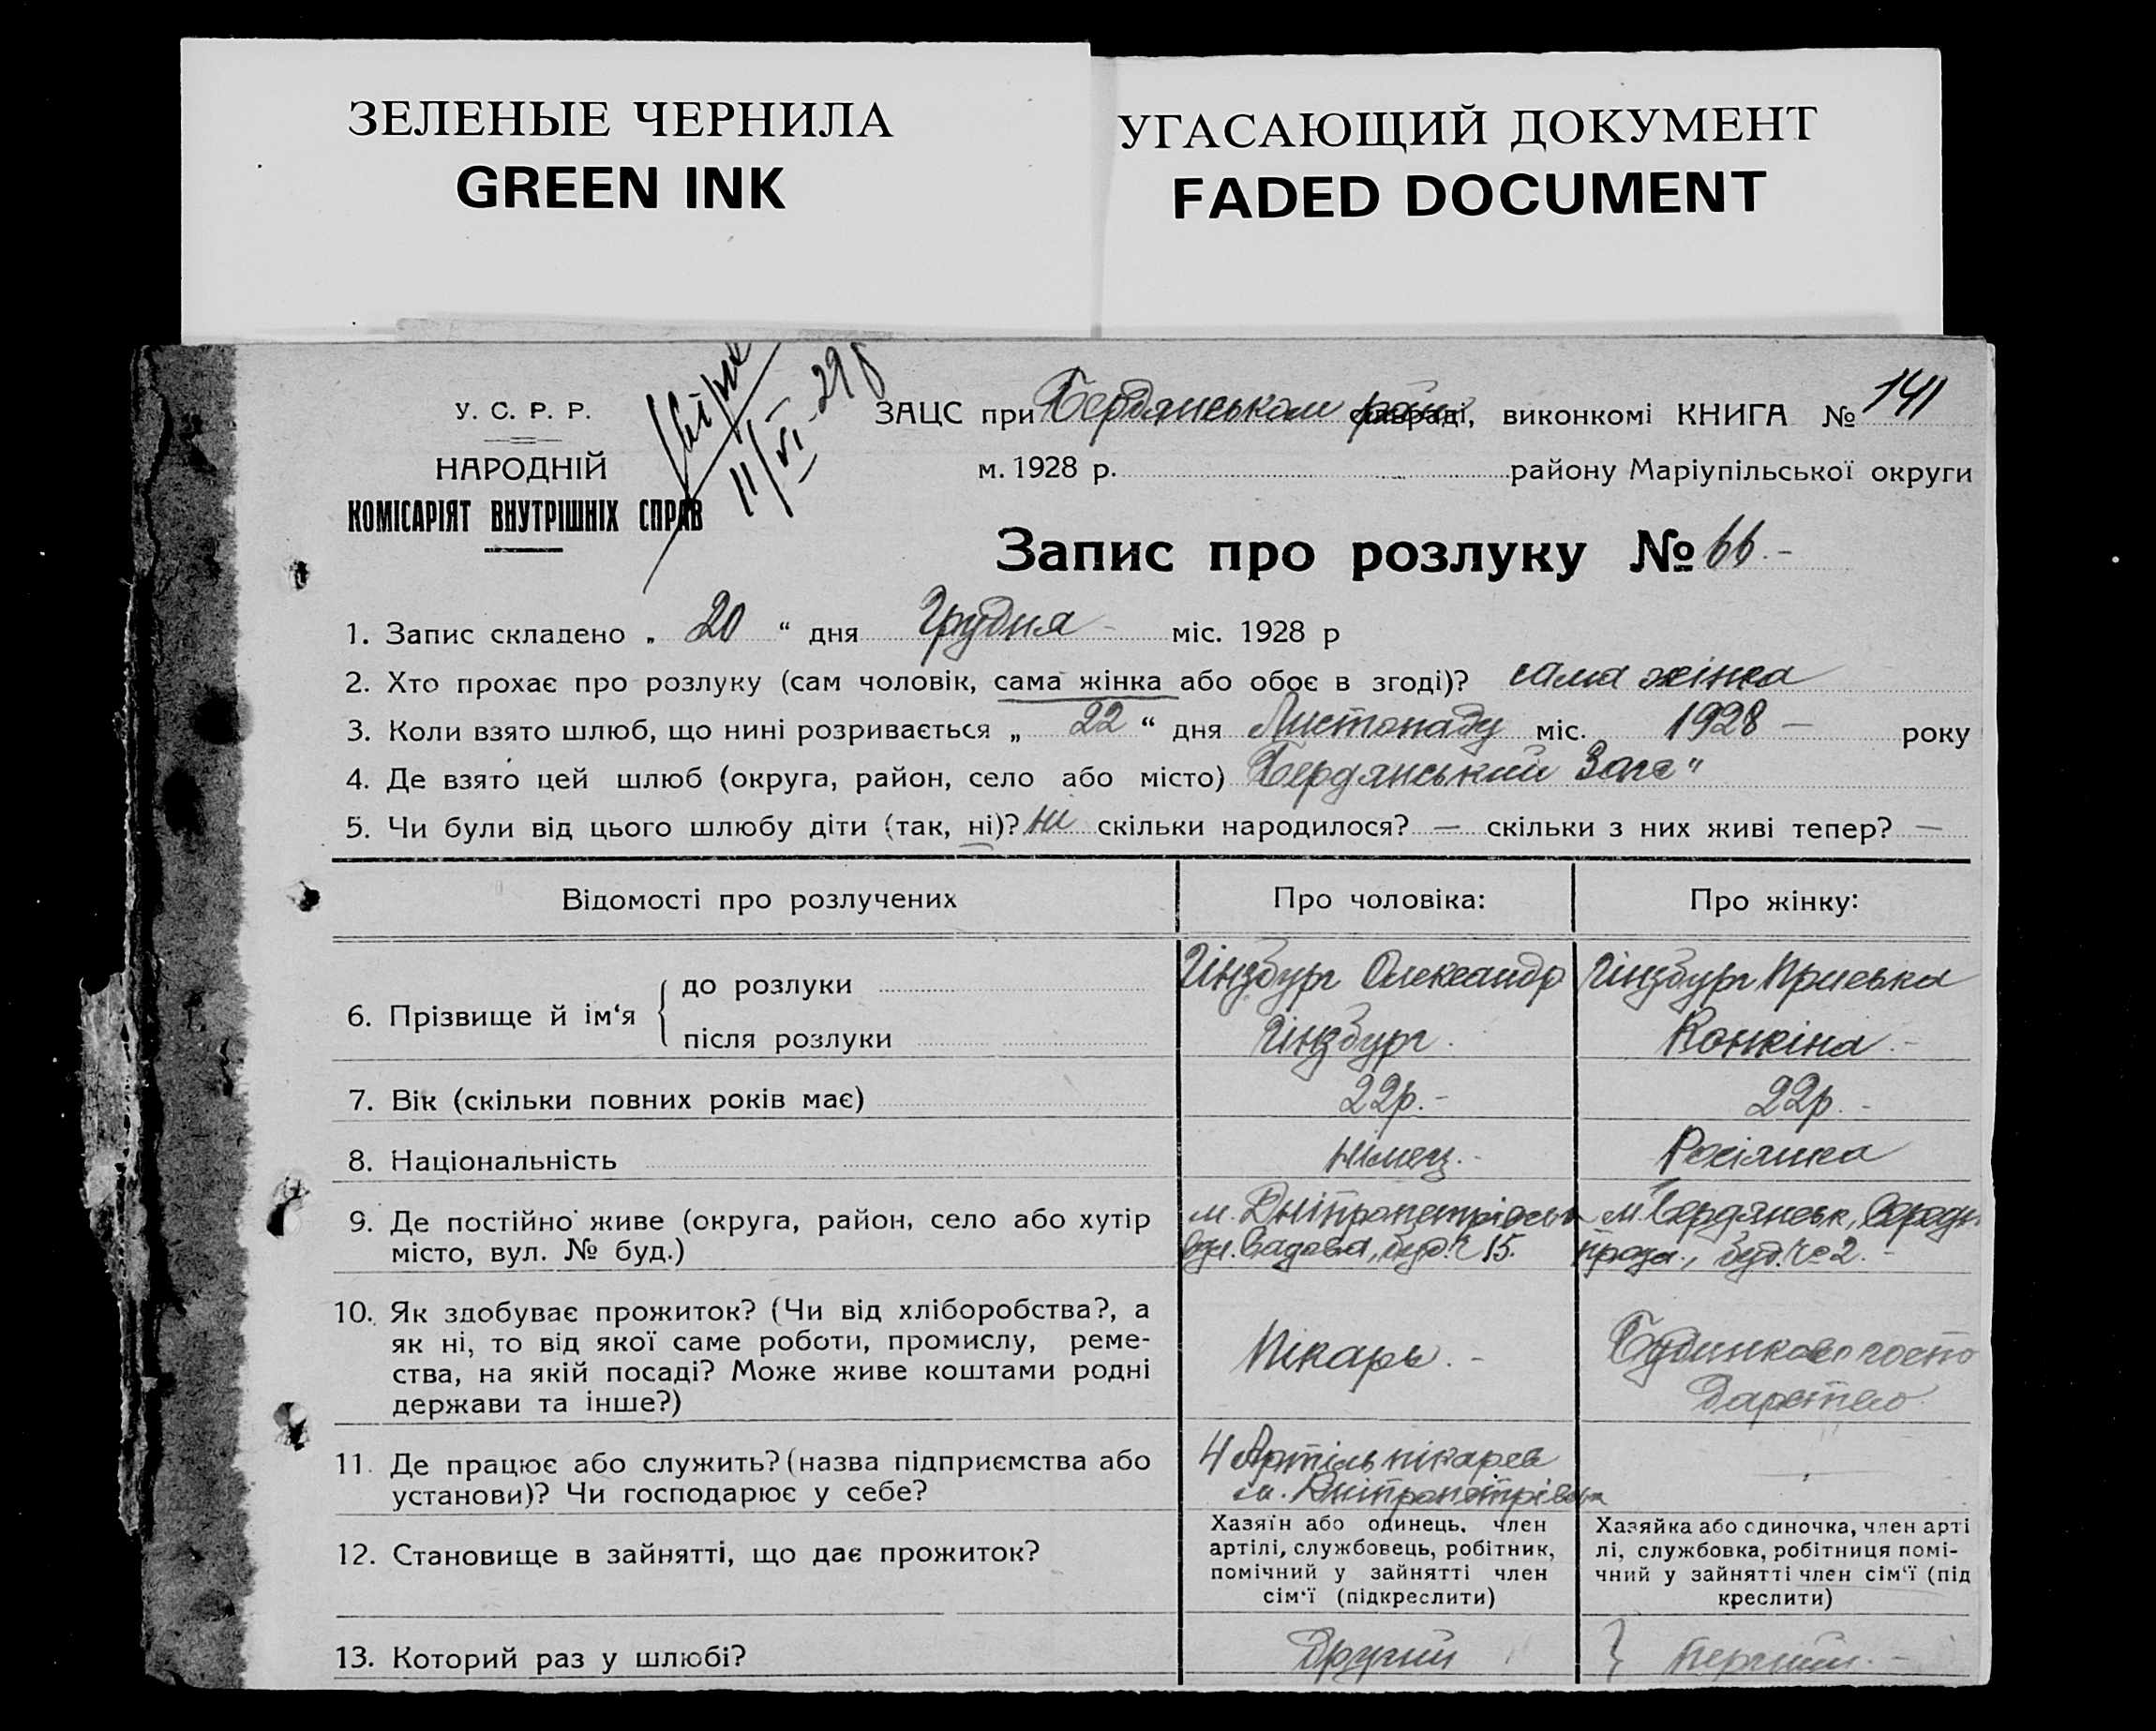 ЗЕЛЕНЫЕ ЧЕРНИЛА
GREEN INK
УГАСАЮЩИЙ ДОКУМЕНТ
FADED DOCUMENT
У. С. Р. Р.
НАРОДНІЙ
КОМІСАРІЯТ ВНУТРІШНІХ СПРАВ
11/VI-29 р
ЗАЦС при Бердянськом рай виконкомі КНИГА № 141
м. 1928 р. району Маріупільської округи
Запис про розлуку № 66.-
1. Запис складено „ 20 “ дня Грудня - міс. 1928 р
2. Хто прохає про розлуку (сам чоловік, сама жінка або обоє в згоді)? сама жінка
3. Коли взято шлюб, що нині розривається „ 22 “ дня Листопаду міс. 1928 - року
4. Де взято цей шлюб (округа, район, село або місто) Бердянський Загс"
5. Чи були від цього шлюбу діти (так, ні)? ні скільки народилося? — скільки з них живі тепер? —
Відомості про розлучених Про чоловіка: Про жінку:
6. Прізвище й ім‘я
до розлуки Гінзбург Олександр Гінзбург Приська
після розлуки Гінзбург. Конкіна.-
7. Вік (скільки повних років має) 22р.- 22р.-
8. Національність німец.- Росіянка
9. Де постійно живе (округа, район, село або хутір м. Дніпропетрівськ м. Бердянськ,
місто, вул. № буд.) вул. Садова, буд. № 15. буд. № 2.-
10. Як здобуває прожиток? (Чи від хліборобства?, а
як ні, то від якої саме роботи, промислу, реме-
ства, на якій посаді? Може живе коштами родні
держави та інше?)
Пікарь.-
Будинкове госпо
дарство
11. Де працює або служить? (назва підприємства або
установи)? Чи господарює у себе?
Артіль пікарів
м. Дніпропетрівськ
12. Становище в зайнятті, що дає прожиток?
Хазяїн або одинець, член
артілі, службовець, робітник,
помічний у зайнятті член
сім‘ї (підкреслити)
Хазяйка або одиночка, член арті
лі, службовка, робітниця помі-
чний у зайнятті член сім‘ї (під
креслити)
13. Которий раз у шлюбі? Другий Перший.-